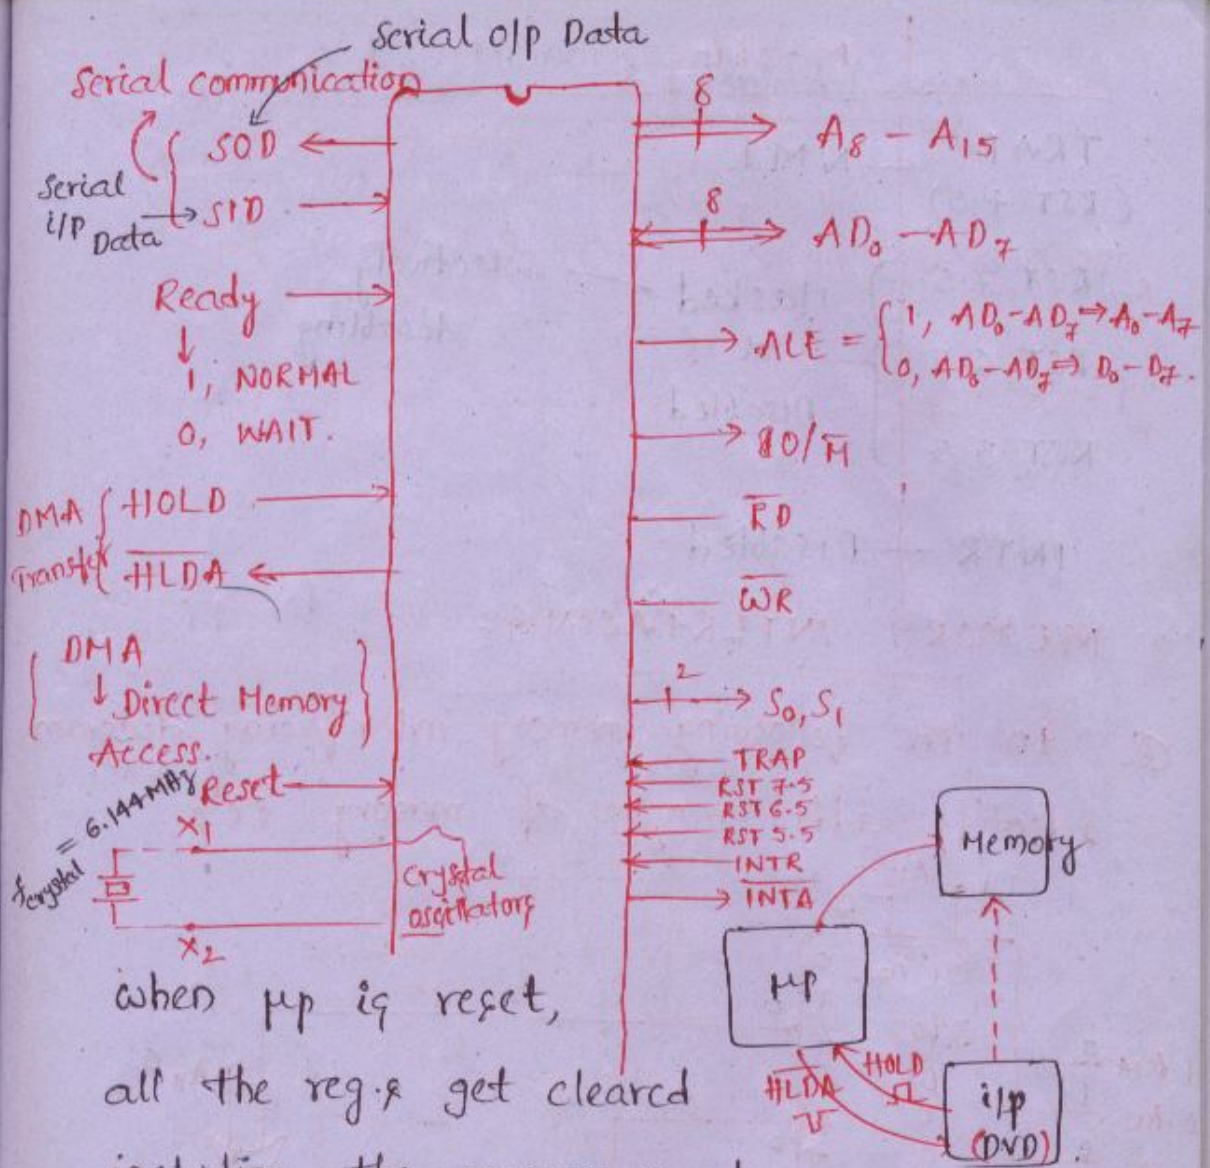 Serial o/p Data
Serial communication
SOD
Serial i/p Data
SID
Ready
1, NORMAL
0, WAIT.
DMA Transfer
HOLD
H̅L̅D̅A̅
DMA
Direct Memory Access.
Reset
fcrystal = 6.144 MHz
X₁
X₂
crystal
oscillators
8
A₈ - A₁₅
8
AD₀ - AD₇
ALE = { 1, AD₀-AD₇ ⇒ A₀-A₇
0, AD₀-AD₇ ⇒ D₀-D₇.
IO/M̅
R̅D̅
W̅R̅
2
S₀, S₁
TRAP
RST 7.5
RST 6.5
RST 5.5
INTR
I̅N̅T̅A̅
Memory
μp
HOLD
H̅L̅D̅A̅
i/p
(DVD)
when μp is reset,
all the reg.s get cleared